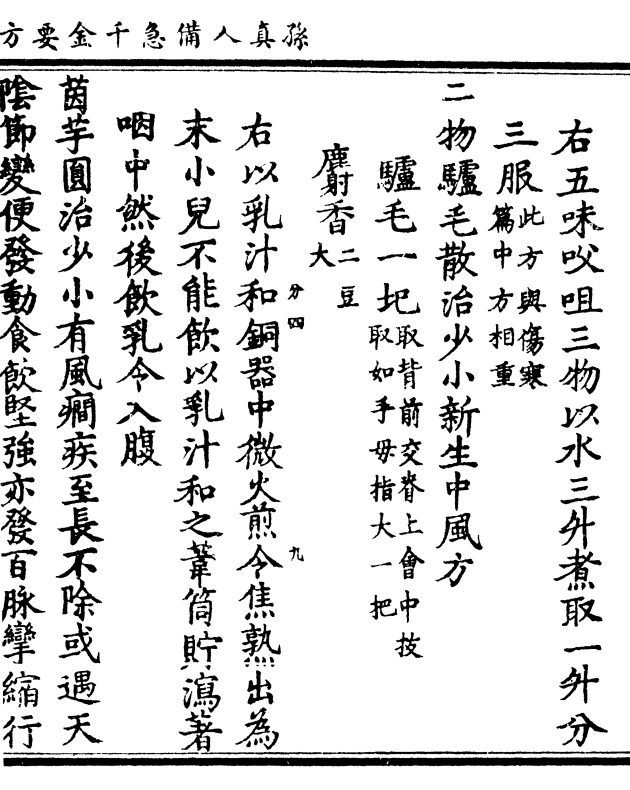 孫真人備急千金要方
右五味㕮咀三物以水三升煮取一升分
三服此方與傷寒
篇中方相重
二物驢毛散治少小新生中風方
驢毛一把取背前交脊上會中拔
取如手母指大一把
麝香二豆
大
右以乳汁和銅器中微火煎令焦熟出為
末小兒不能飲以乳汁和之葦筒貯瀉著
咽中然後飲乳令入腹
茵芋圓治少小有風癎疾至長不除或遇天
陰節變便發動食飲堅強亦發百脉攣縮行
分四
九